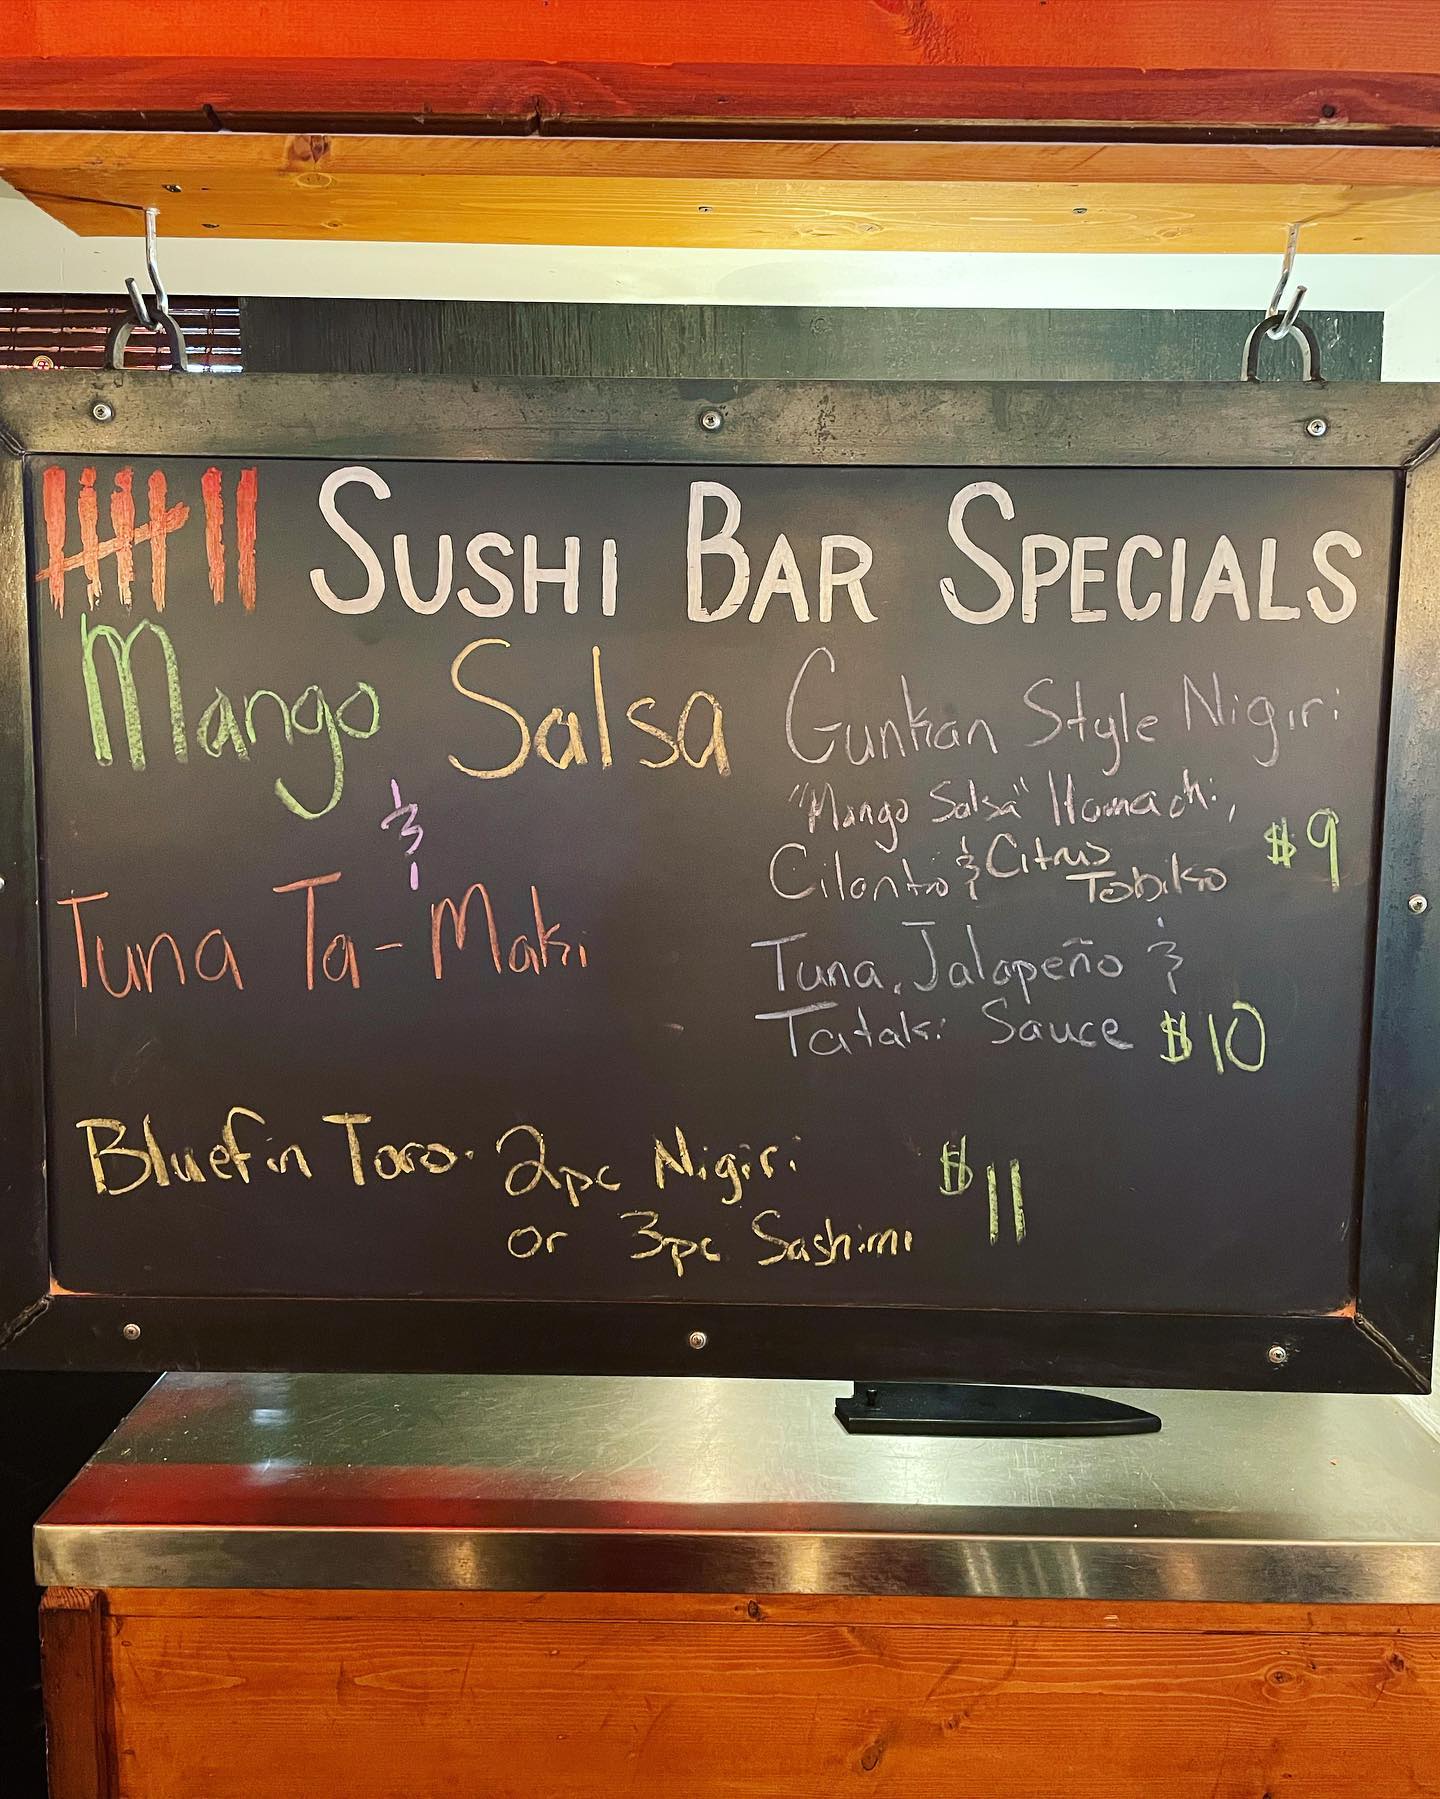 SUSHI BAR SPECIALS
Mango Salsa
&
Tuna Ta-Maki
Gunkan Style Nigiri
"Mango Salsa" Hamachi,
Cilantro & Citrus
Tobiko $9
Tuna, Jalapeño &
Tataki Sauce $10
Bluefin Toro. 2pc Nigiri
or 3pc Sashimi $11